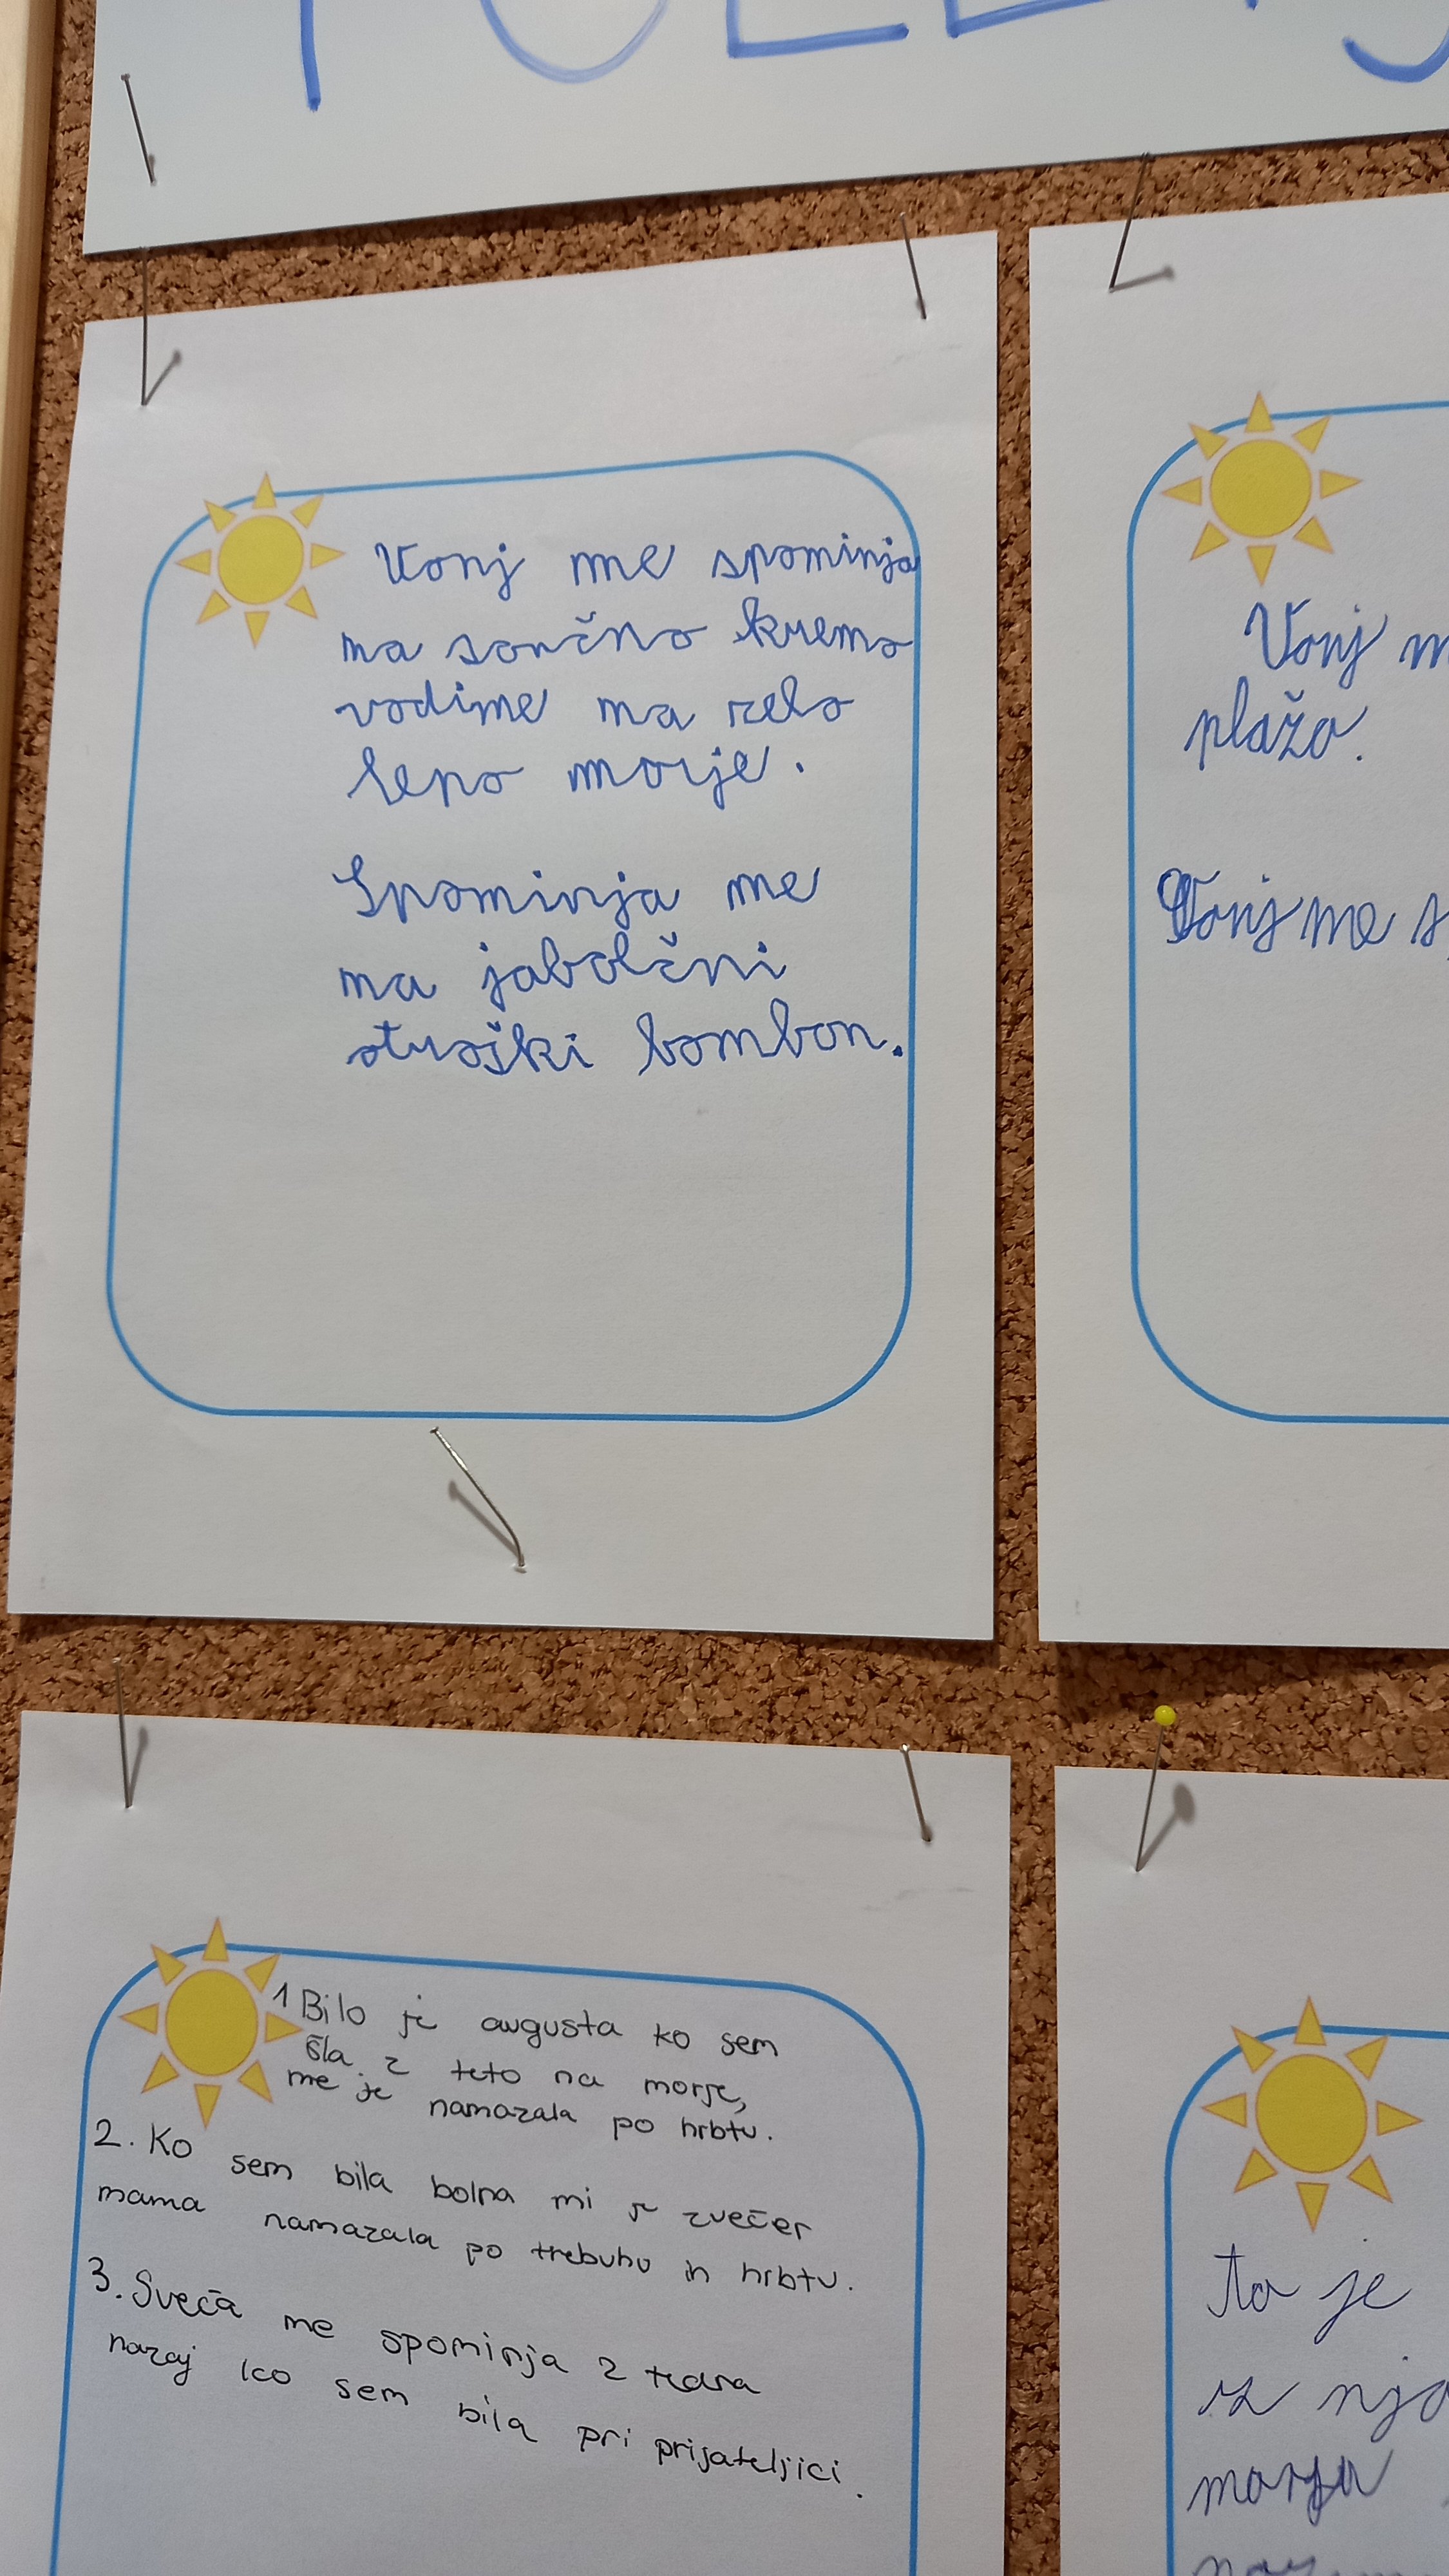 Vonj me spominja
na sončno kremo
vodime na zelo
lepo morje.
Spominja me
na jabolčni
otroški bombon.
Vonj
plažo.
Vonj me
1 Bilo je avgusta ko sem
šla z teto na morje,
me je namazala po hrbtu.
2. Ko sem bila bolna mi je zvečer
mama namazala po trebuhu in hrbtu.
3. Sveča me spominja 2 tedna
nazaj ko sem bila pri prijateljici.
to je
iz
morja